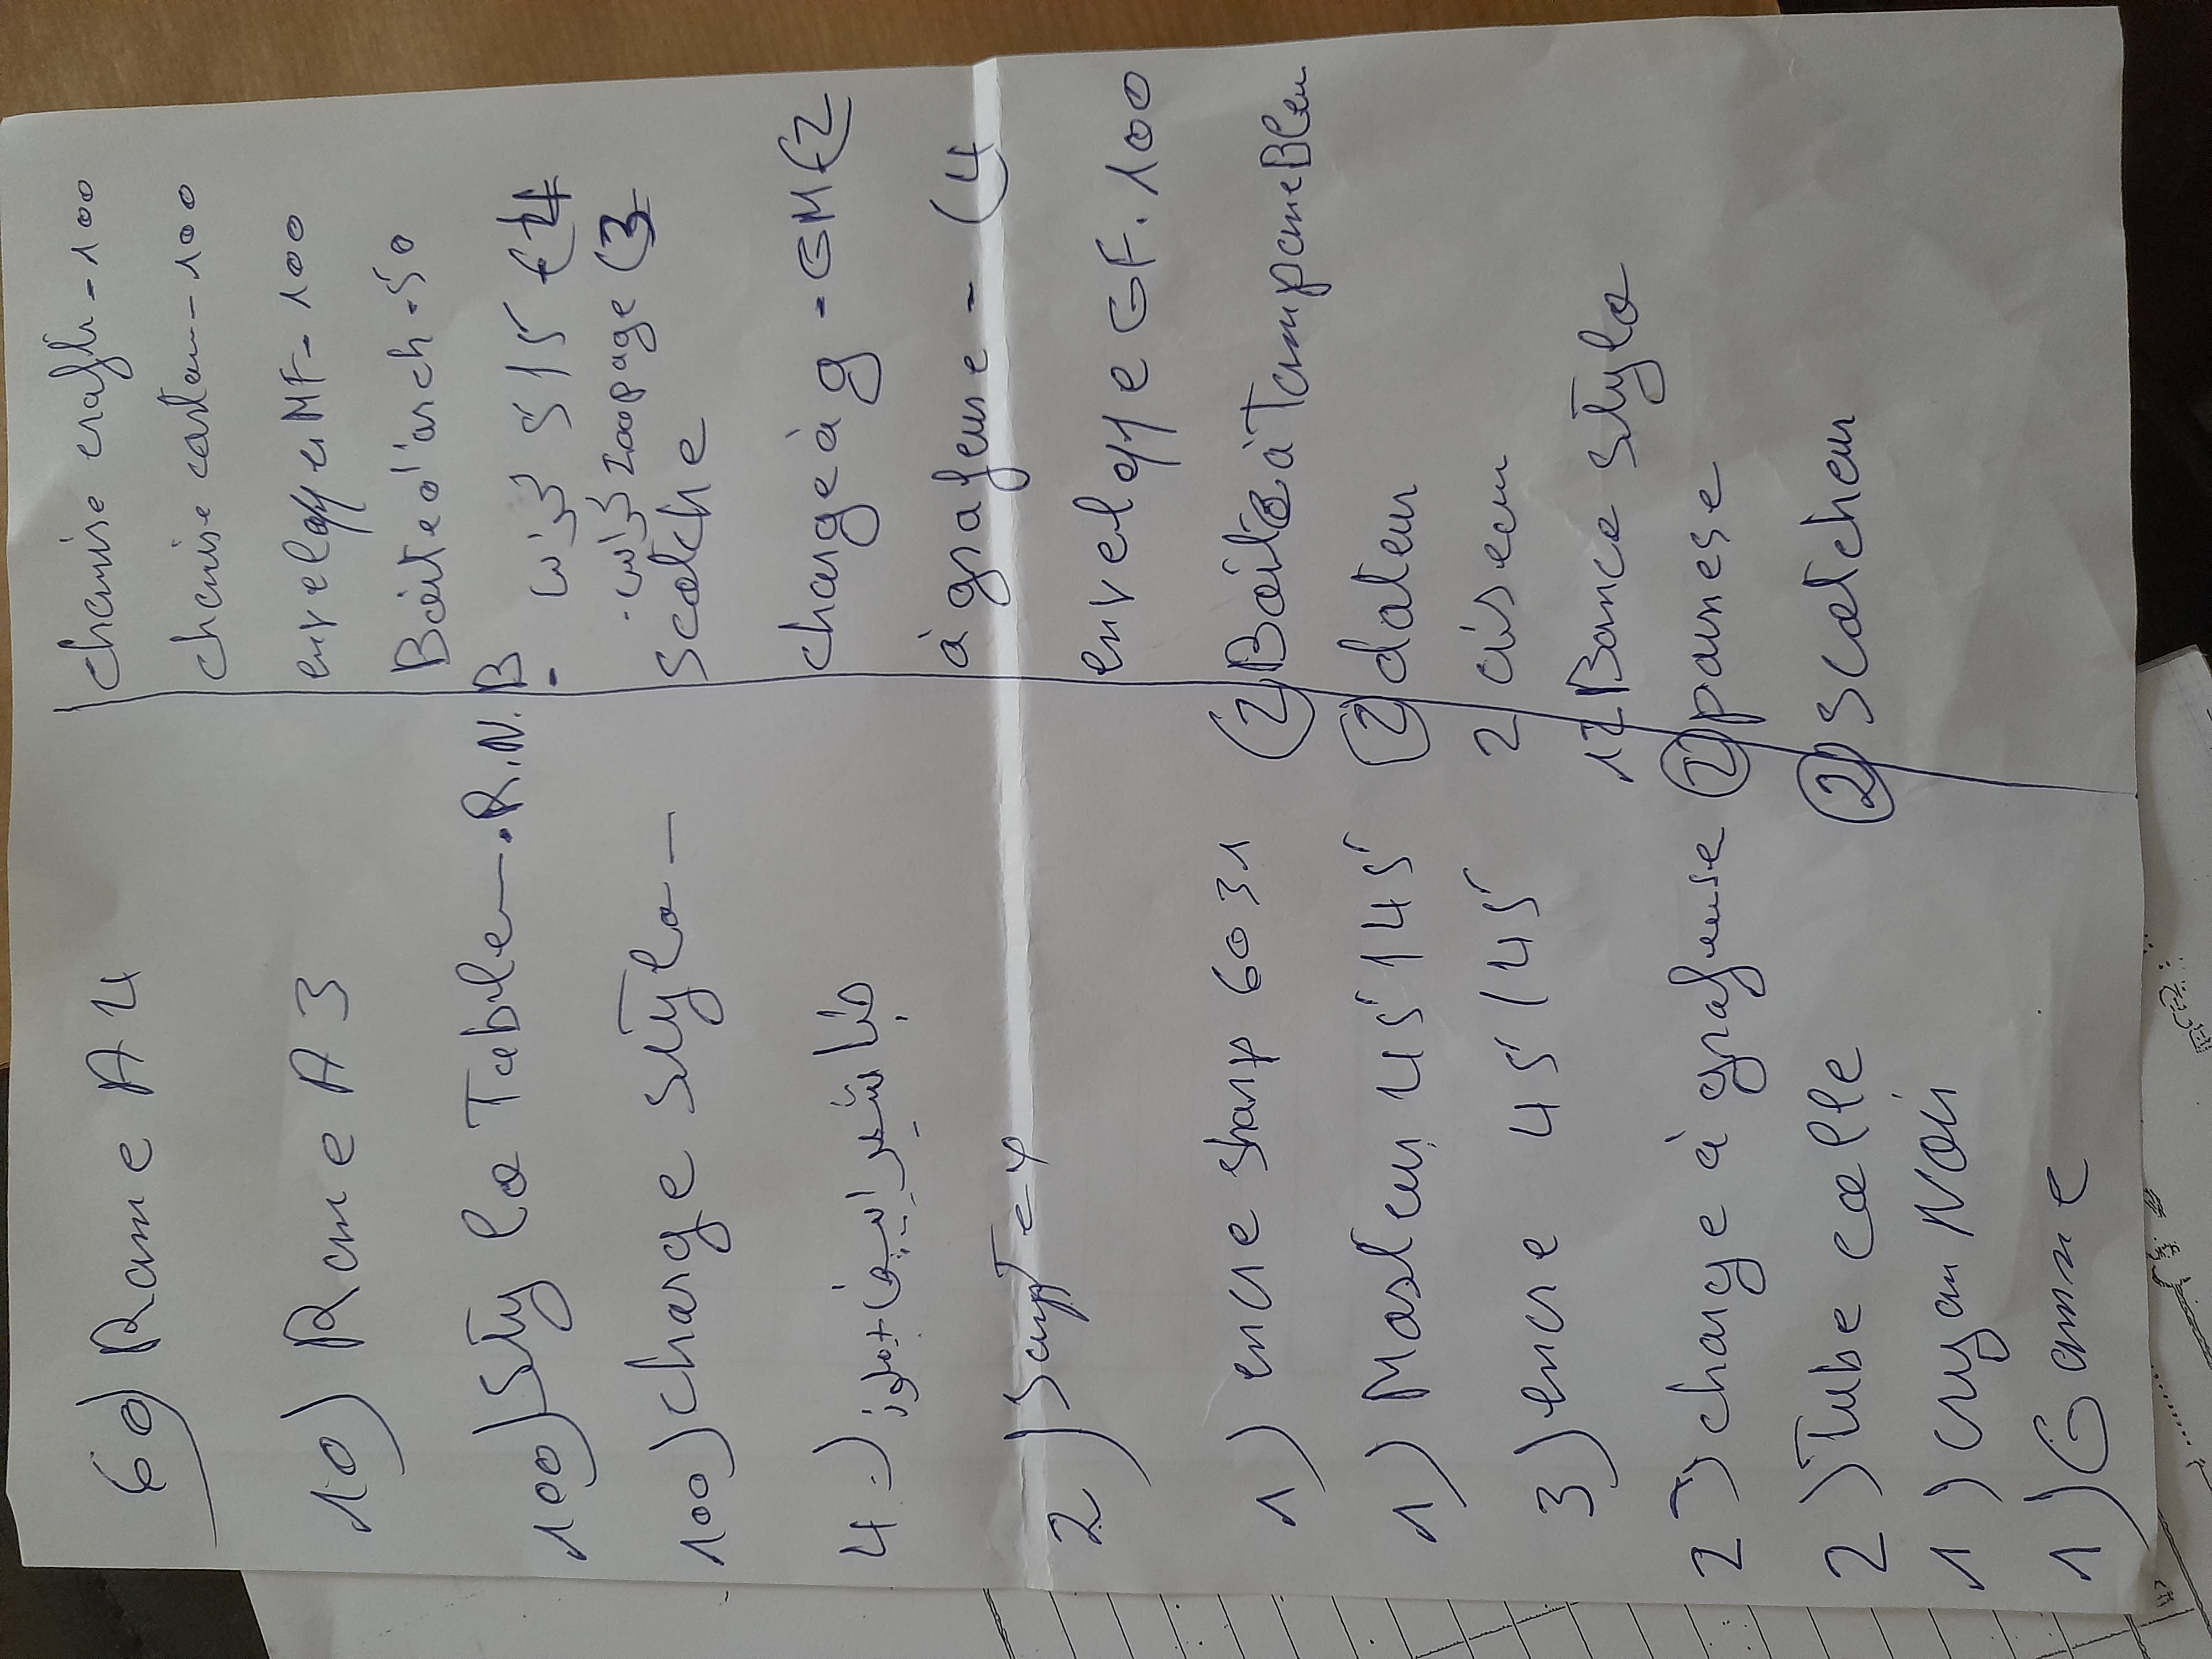 60) Rame A4
10) Rame A3
100) Stylo Table - R.N.B
100) Charge stylo -
4.) طباشير ابيض + ملون
2)
1) encre sharp 6031
1) Masteur 45145
3) encre 45145
2) charge à grafeuse
2) Tube colle
1) cryon Noir
1) Gomme
chemise craft - 100
chemise carton - 100
enveloppe MF - 100
Boite d'arch - 50
- 515
200 page (3
scotche
charge à g - GM (2
à grafeuse - (4
enveloppe GF. 100
(2) Boite à Tampone Bleu
(2) dateur
2 ciseau
12 Bance stylo
(2) panese
(2) scotcheur